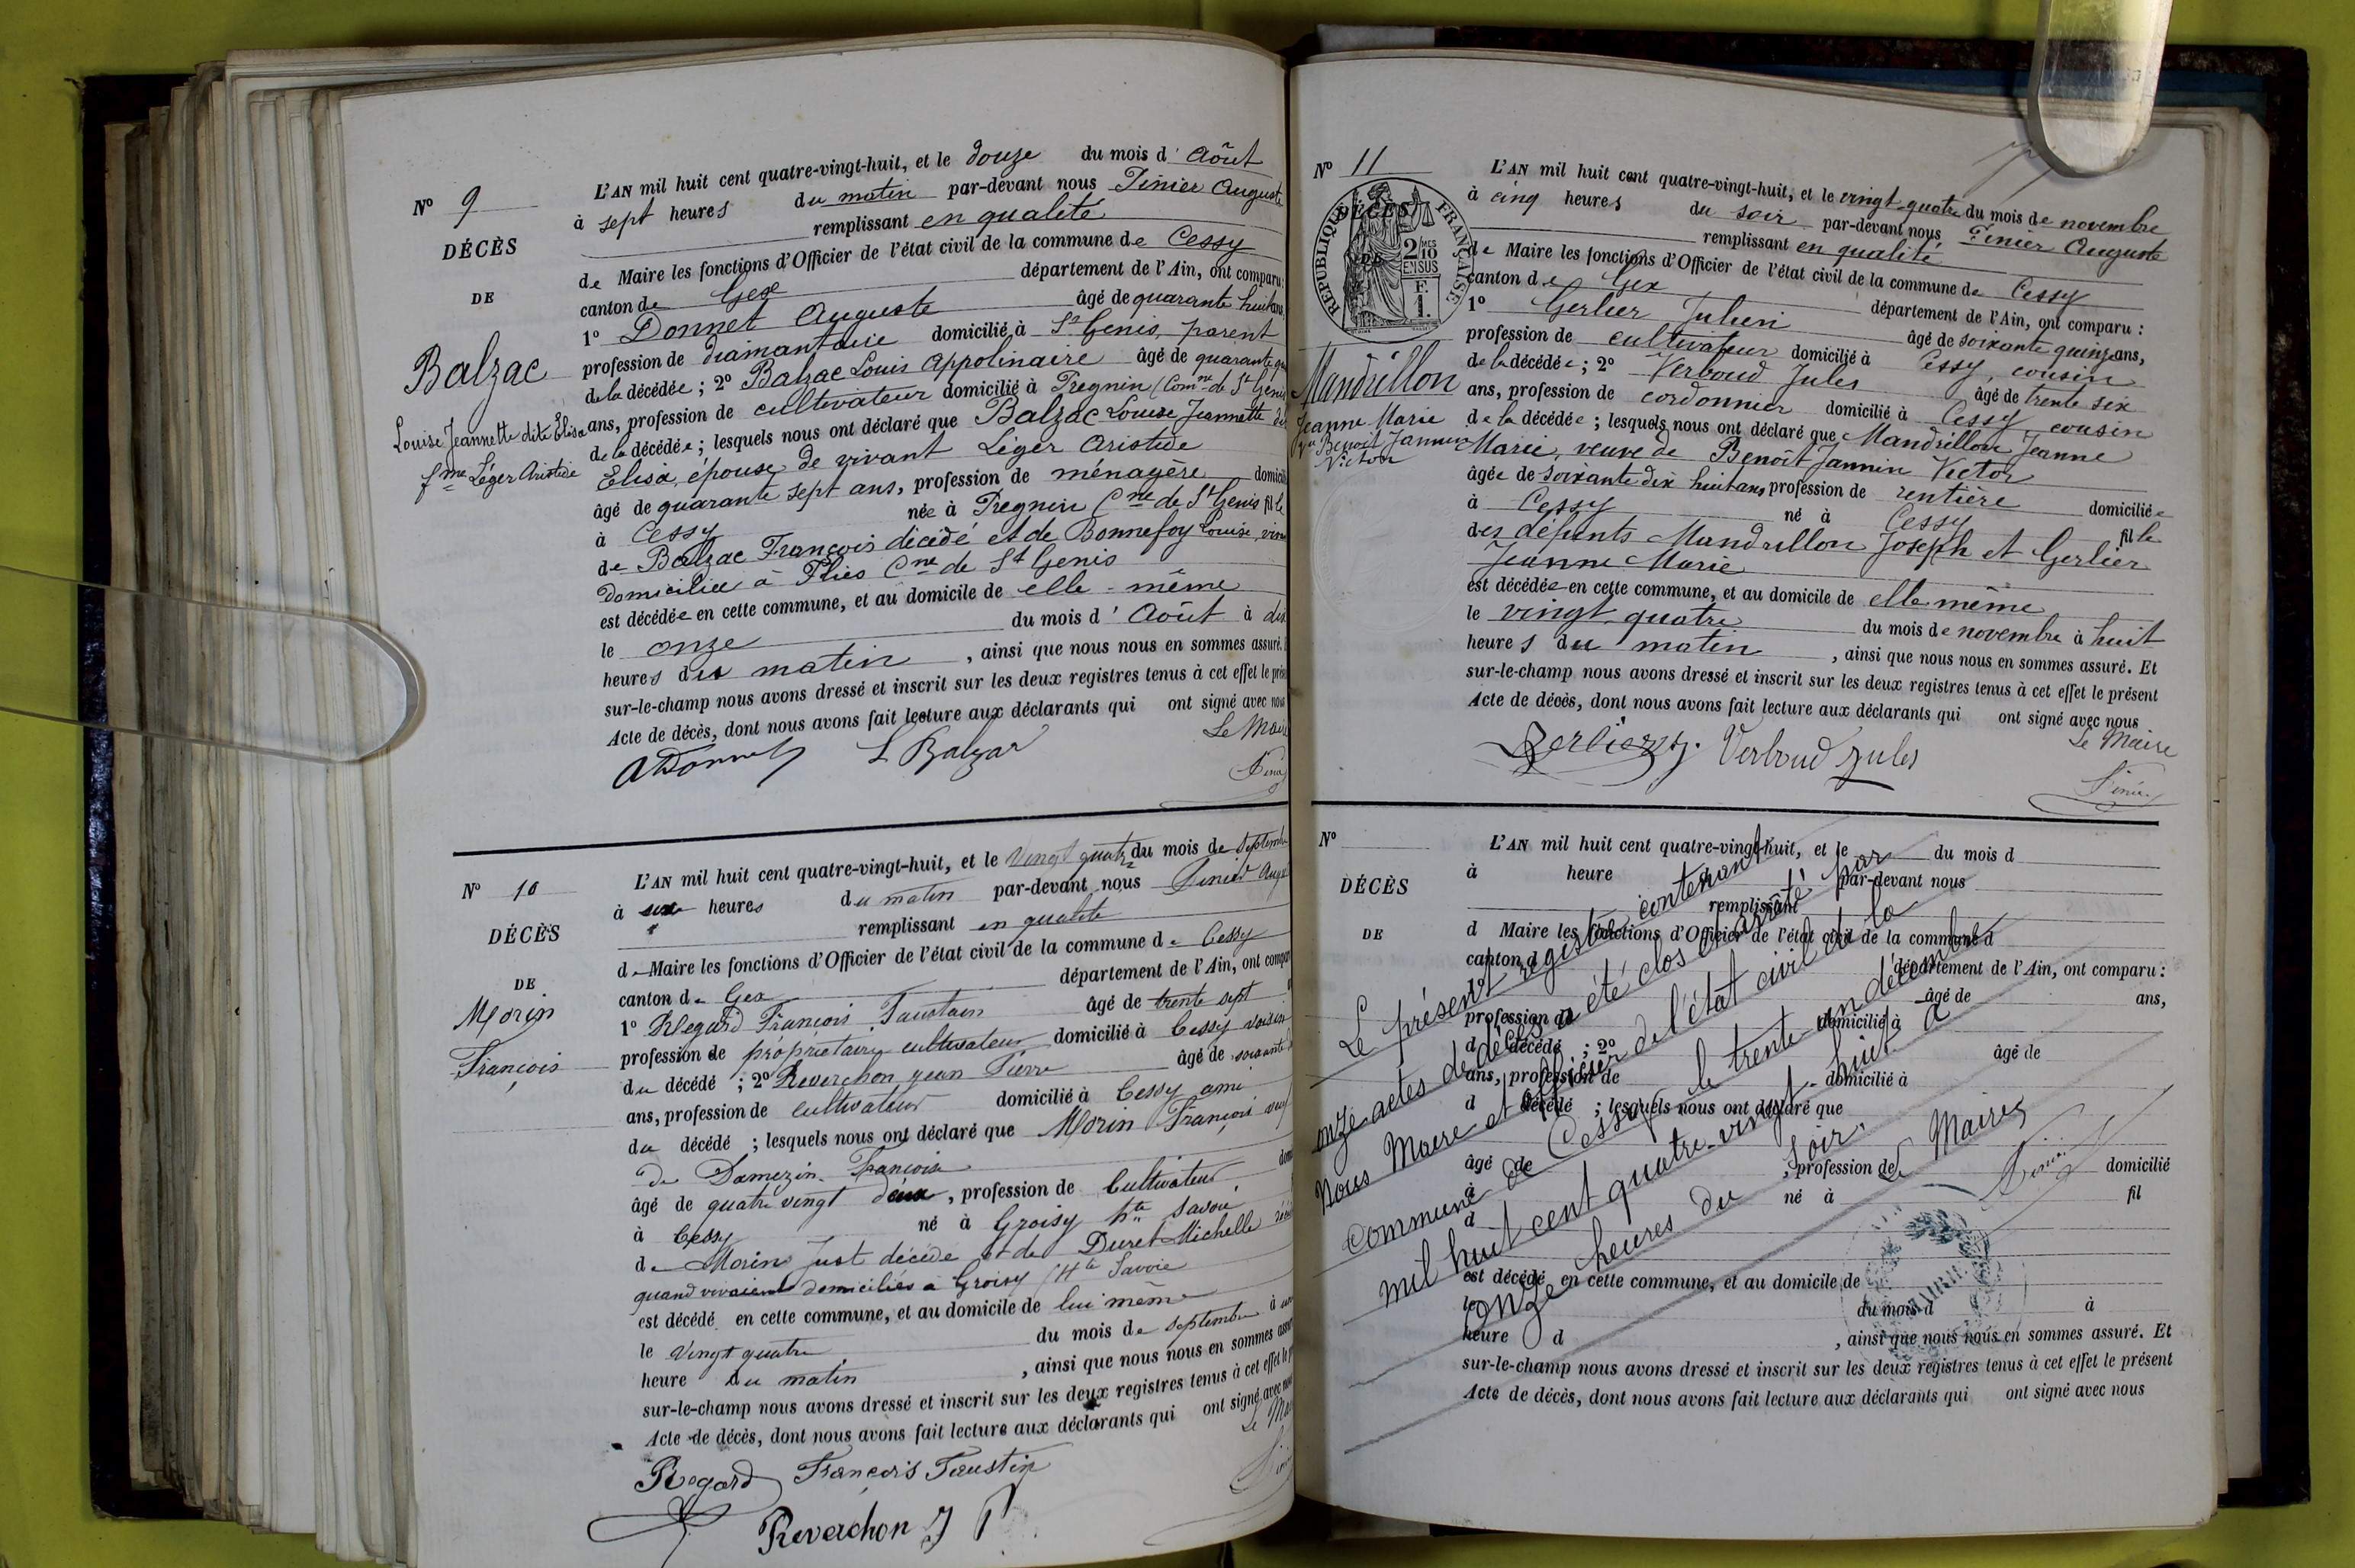 N° 9
DÉCÈS
DE
Balzac
Louise Jeannette dite Elisa
fme Léger Aristide
L'AN mil huit cent quatre-vingt-huit, et le douze du mois d'Août
à sept heures du matin par-devant nous Pinier Auguste
remplissant en qualité
de Maire les fonctions d'Officier de l'état civil de la commune de Cessy
canton de Gex département de l'Ain, ont comparu:
1° Donnet Auguste âgé de quarante huit ans,
profession de diamantaire domicilié à St Genis, parent
de la décédée; 2° Balzac Louis Appolinaire âgé de quarante
ans, profession de cultivateur domicilié à Pregnin (Comne de St Genis
de la décédée; lesquels nous ont déclaré que Balzac Louise Jeannette
Elisa, épouse de vivant Léger Aristide
âgé de quarante sept ans, profession de ménagère
à Cessy née à Pregnin Cne de St Genis fille
de Balzac François décédé et de Bonnefoy Louise,
domiciliée à Flies Cne de St Genis
est décédée en cette commune, et au domicile de elle-même
le onze du mois d'Août à dix
heures du matin, ainsi que nous nous en sommes assuré.
sur-le-champ nous avons dressé et inscrit sur les deux registres tenus à cet effet le
Acte de décès, dont nous avons fait lecture aux déclarants qui ont signé avec nous
Le Maire
A Donnet L Balzac
N° 10
DÉCÈS
DE
Morin
François
L'AN mil huit cent quatre-vingt-huit, et le Vingt quatre du mois de Septembre
à six heures du matin par-devant nous Pinier
remplissant en qualité
de Maire les fonctions d'Officier de l'état civil de la commune de Cessy
canton de Gex département de l'Ain, ont
1° Regard François Faustain âgé de trente sept
profession de propriétaire cultivateur domicilié à Cessy voisin
du décédé; 2° Reverchon Jean Pierre âgé de soixante
ans, profession de cultivateur domicilié à Cessy ami
du décédé; lesquels nous ont déclaré que Morin François veuf
de Damezin Françoise
âgé de quatre vingt deux, profession de Cultivateur
à Cessy né à Groisy Hte Savoie
de Morin Just décédé et de Duret Michelle
quand vivaient domiciliés à Groisy (Hte Savoie
est décédé en cette commune, et au domicile de lui même
le Vingt quatre du mois de Septembre à une
heure du matin, ainsi que nous nous en sommes
sur-le-champ nous avons dressé et inscrit sur les deux registres tenus à cet effet
Acte de décès, dont nous avons fait lecture aux déclarants qui ont signé avec
Le
Regard François Faustin
Reverchon J P
N° 11
DÉCÈS
DE
RÉPUBLIQUE FRANÇAISE
2/10MES
EN SUS
F.
1.
Mandrillon
Jeanne Marie
vve Benoît Jannin
Victor
L'AN mil huit cent quatre-vingt-huit, et le vingt quatre du mois de novembre
à cinq heures du soir par-devant nous Pinier Auguste
remplissant en qualité
de Maire les fonctions d'Officier de l'état civil de la commune de Cessy
canton de Gex département de l'Ain, ont comparu:
1° Gerlier Julien âgé de soixante quinze ans,
profession de cultivateur domicilié à Cessy, cousin
de la décédée; 2° Verboud Jules âgé de trente six
ans, profession de cordonnier domicilié à Cessy cousin
de la décédée; lesquels nous ont déclaré que Mandrillon Jeanne
Marie, veuve de Benoît Jannin Victor
âgée de soixante dix huit ans, profession de rentière domiciliée
à Cessy né à Cessy fille
des défunts Mandrillon Joseph et Gerlier
Jeanne Marie
est décédée en cette commune, et au domicile de elle même
le vingt quatre du mois de novembre à huit
heures du matin, ainsi que nous nous en sommes assuré. Et
sur-le-champ nous avons dressé et inscrit sur les deux registres tenus à cet effet le présent
Acte de décès, dont nous avons fait lecture aux déclarants qui ont signé avec nous
Le Maire
Verboud Jules
Pinier
N°
DÉCÈS
DE
L'AN mil huit cent quatre-vingt-huit, et le du mois d
à heure d par-devant nous
remplissant
d Maire les fonctions d'Officier de l'état civil de la commune d
canton d département de l'Ain, ont comparu:
1° âgé de ans,
profession de domicilié à
d décédé; 2° âgé de
ans, profession de domicilié à
d décédé; lesquels nous ont déclaré que
âgé de, profession de domicilié
à né à fil
d
est décédé en cette commune, et au domicile de
le du mois d à
heure d, ainsi que nous nous en sommes assuré. Et
sur-le-champ nous avons dressé et inscrit sur les deux registres tenus à cet effet le présent
Acte de décès, dont nous avons fait lecture aux déclarants qui ont signé avec nous
Le présent registre contenant
onze actes de décès a été clos et arrêté par
Nous Maire et officier de l'état civil de la
commune de Cessy le trente un décembre
mil huit cent quatre-vingt-huit à
onze heures du soir.
Le Maire
Pinier
MAIRIE